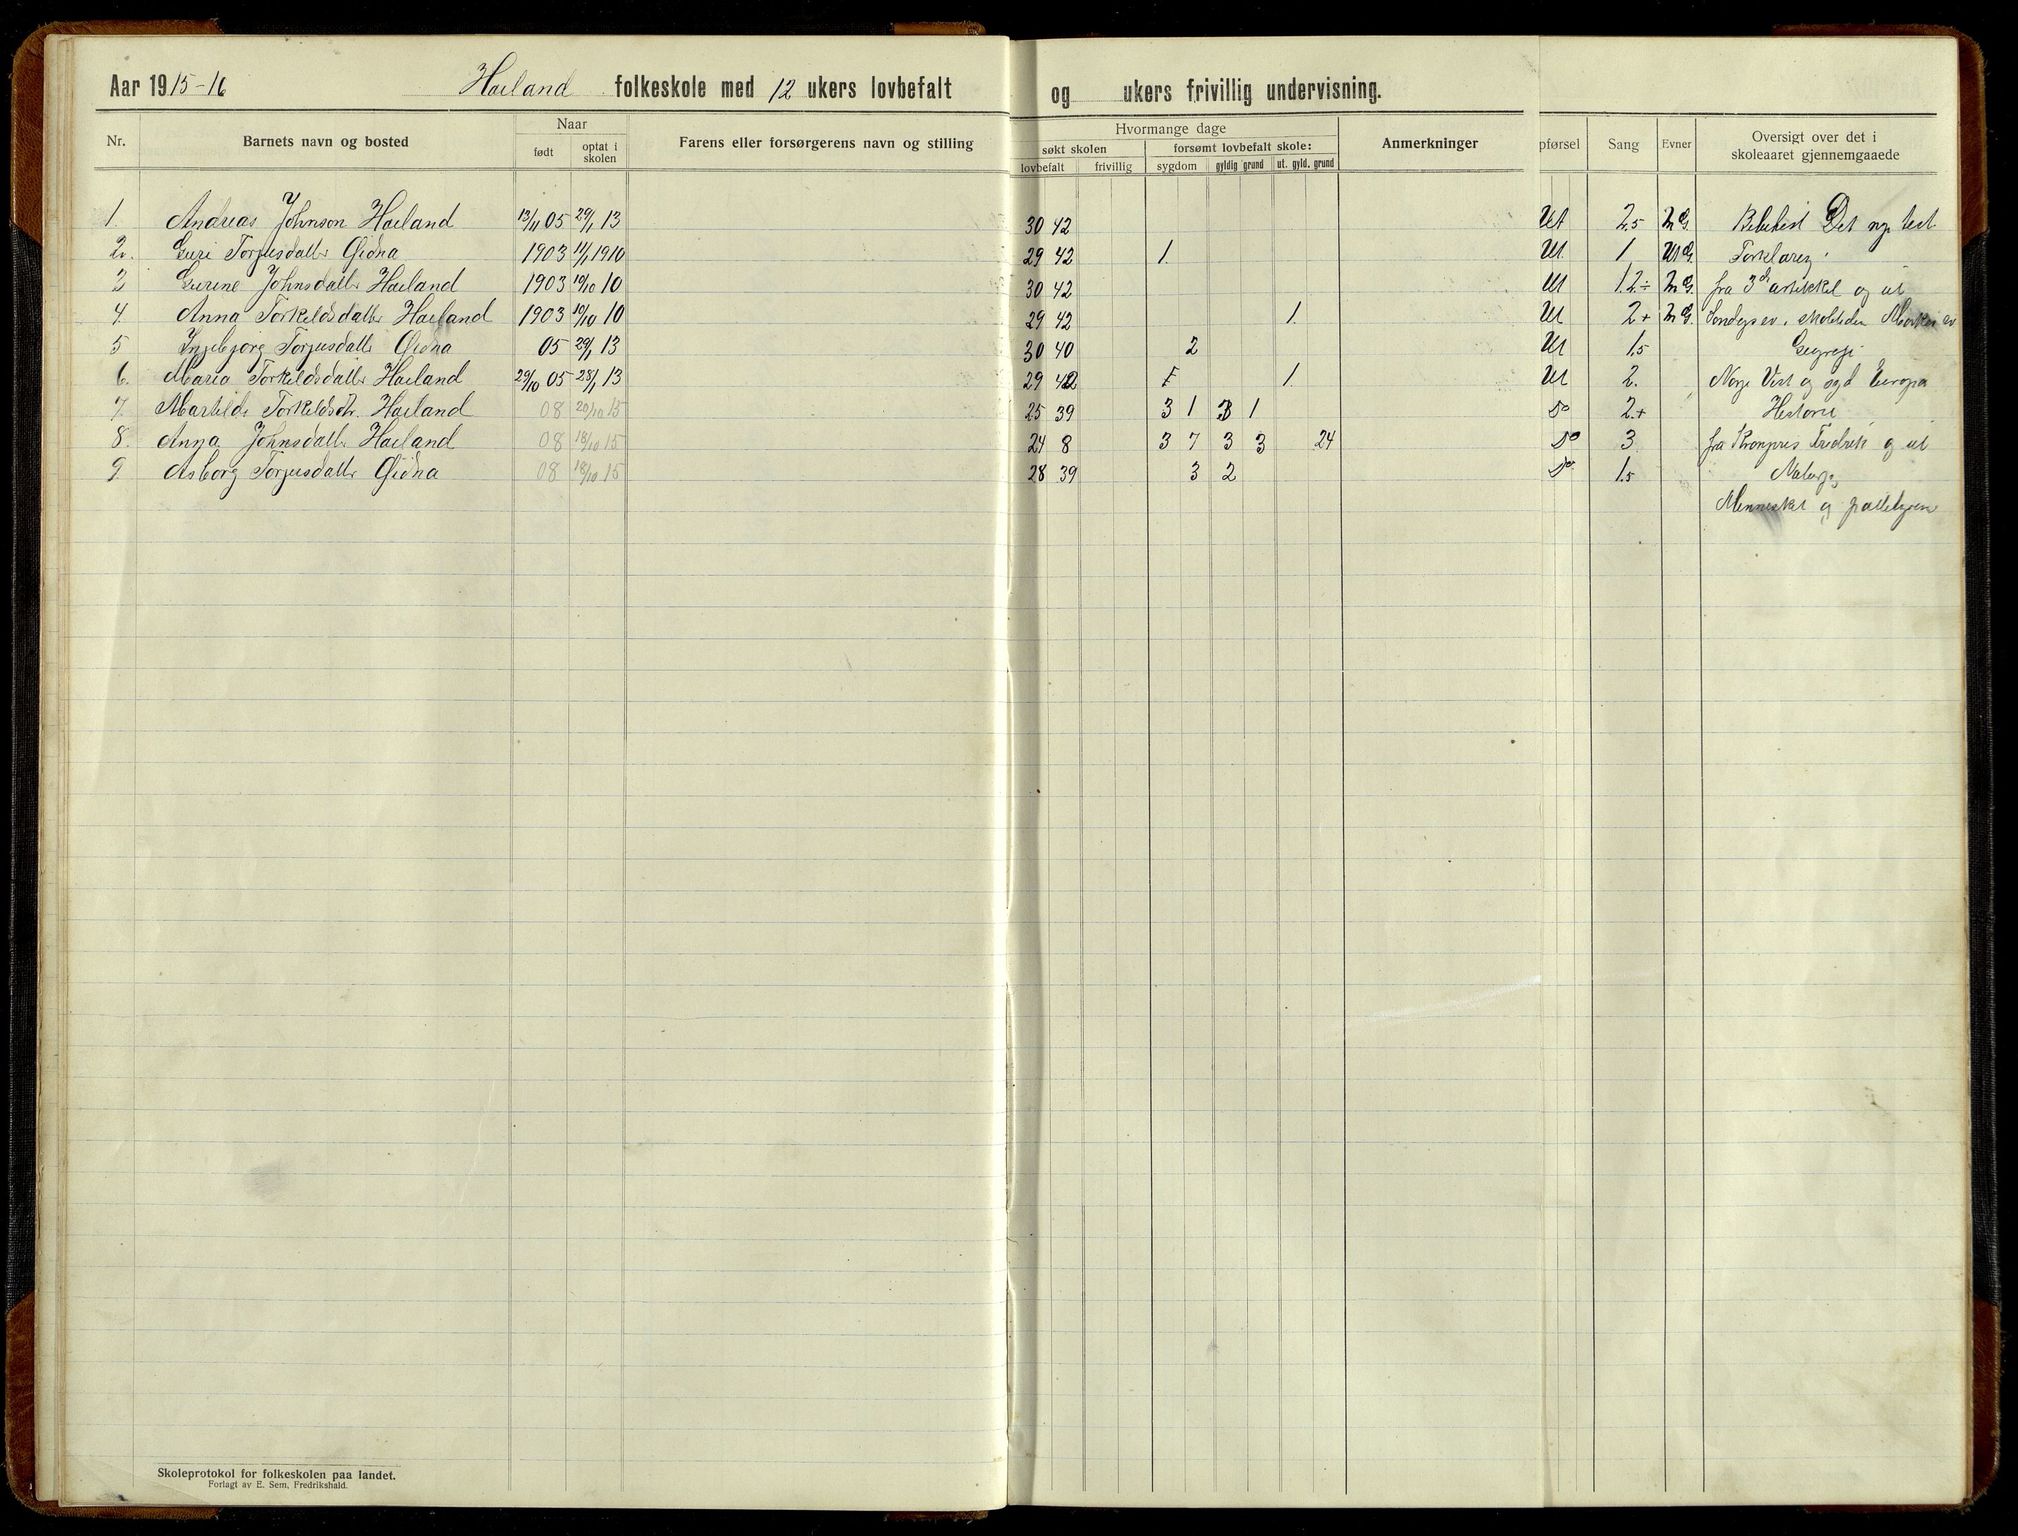 Aar 1915-16 Haeland folkeskole med 12 ukers lovbefalt og ukers frivillig undervisning.
Nr. Barnets navn og bosted Naar Farens eller forsørgerens navn og stilling Hvormange dage Anmerkninger pførsel Sang Evner Oversigt over det i
født optat i søkt skolen forsømt lovbefalt skole: skoleaaret gjennemgaaede
skolen lovbefalt frivillig sygdom gyldig grund ut. gyld. grund
1. Andreas Johnson Haeland 13/11 05 29/1 13 30 42 Ut 2,5 M G Det ny test
2. Guri Torjusdatter Gidna 1903 11/1 1910 29 42 1. Ut. 1 Ut G. Forklaring
3 Gurine Johnsdatter Haeland 1903 10/10 10 30 42 Ut 1.2 ÷ M G. fra 3d artikkel og ut
4. Anna Torkeldsdatter Haeland 1903 10/10 10 29 42 1. Ut 2+ M G.
5 Ingebjorg Torjusdatter Gidna 05 29/1 13 30 40 2 Ut 1,5 Geografi
6. Maria Torkeldsdatter Haeland 29/10 05 28/1 13 29 42 1. Ut 2. Norge Vest og syd Europa
7. Mathilde Torkeldsdtr. Haeland 08 20/10 15 25 39 3 1 3 1 Do 2+ Historie
8. Anna Johnsdatter Haeland 08 18/10 15 24 8 3 7 3 3 24 Do 3 fra Kronpris Fredrik og ut
9. Asborg Torjusdatter Gidna 08 18/10 15 28 39 3 2 Do 1.5 Naturf.
Mennesket og pattedyrene
Skoleprotokol for folkeskolen paa landet.
Forlagt av E. Sem, Fredrikshald.